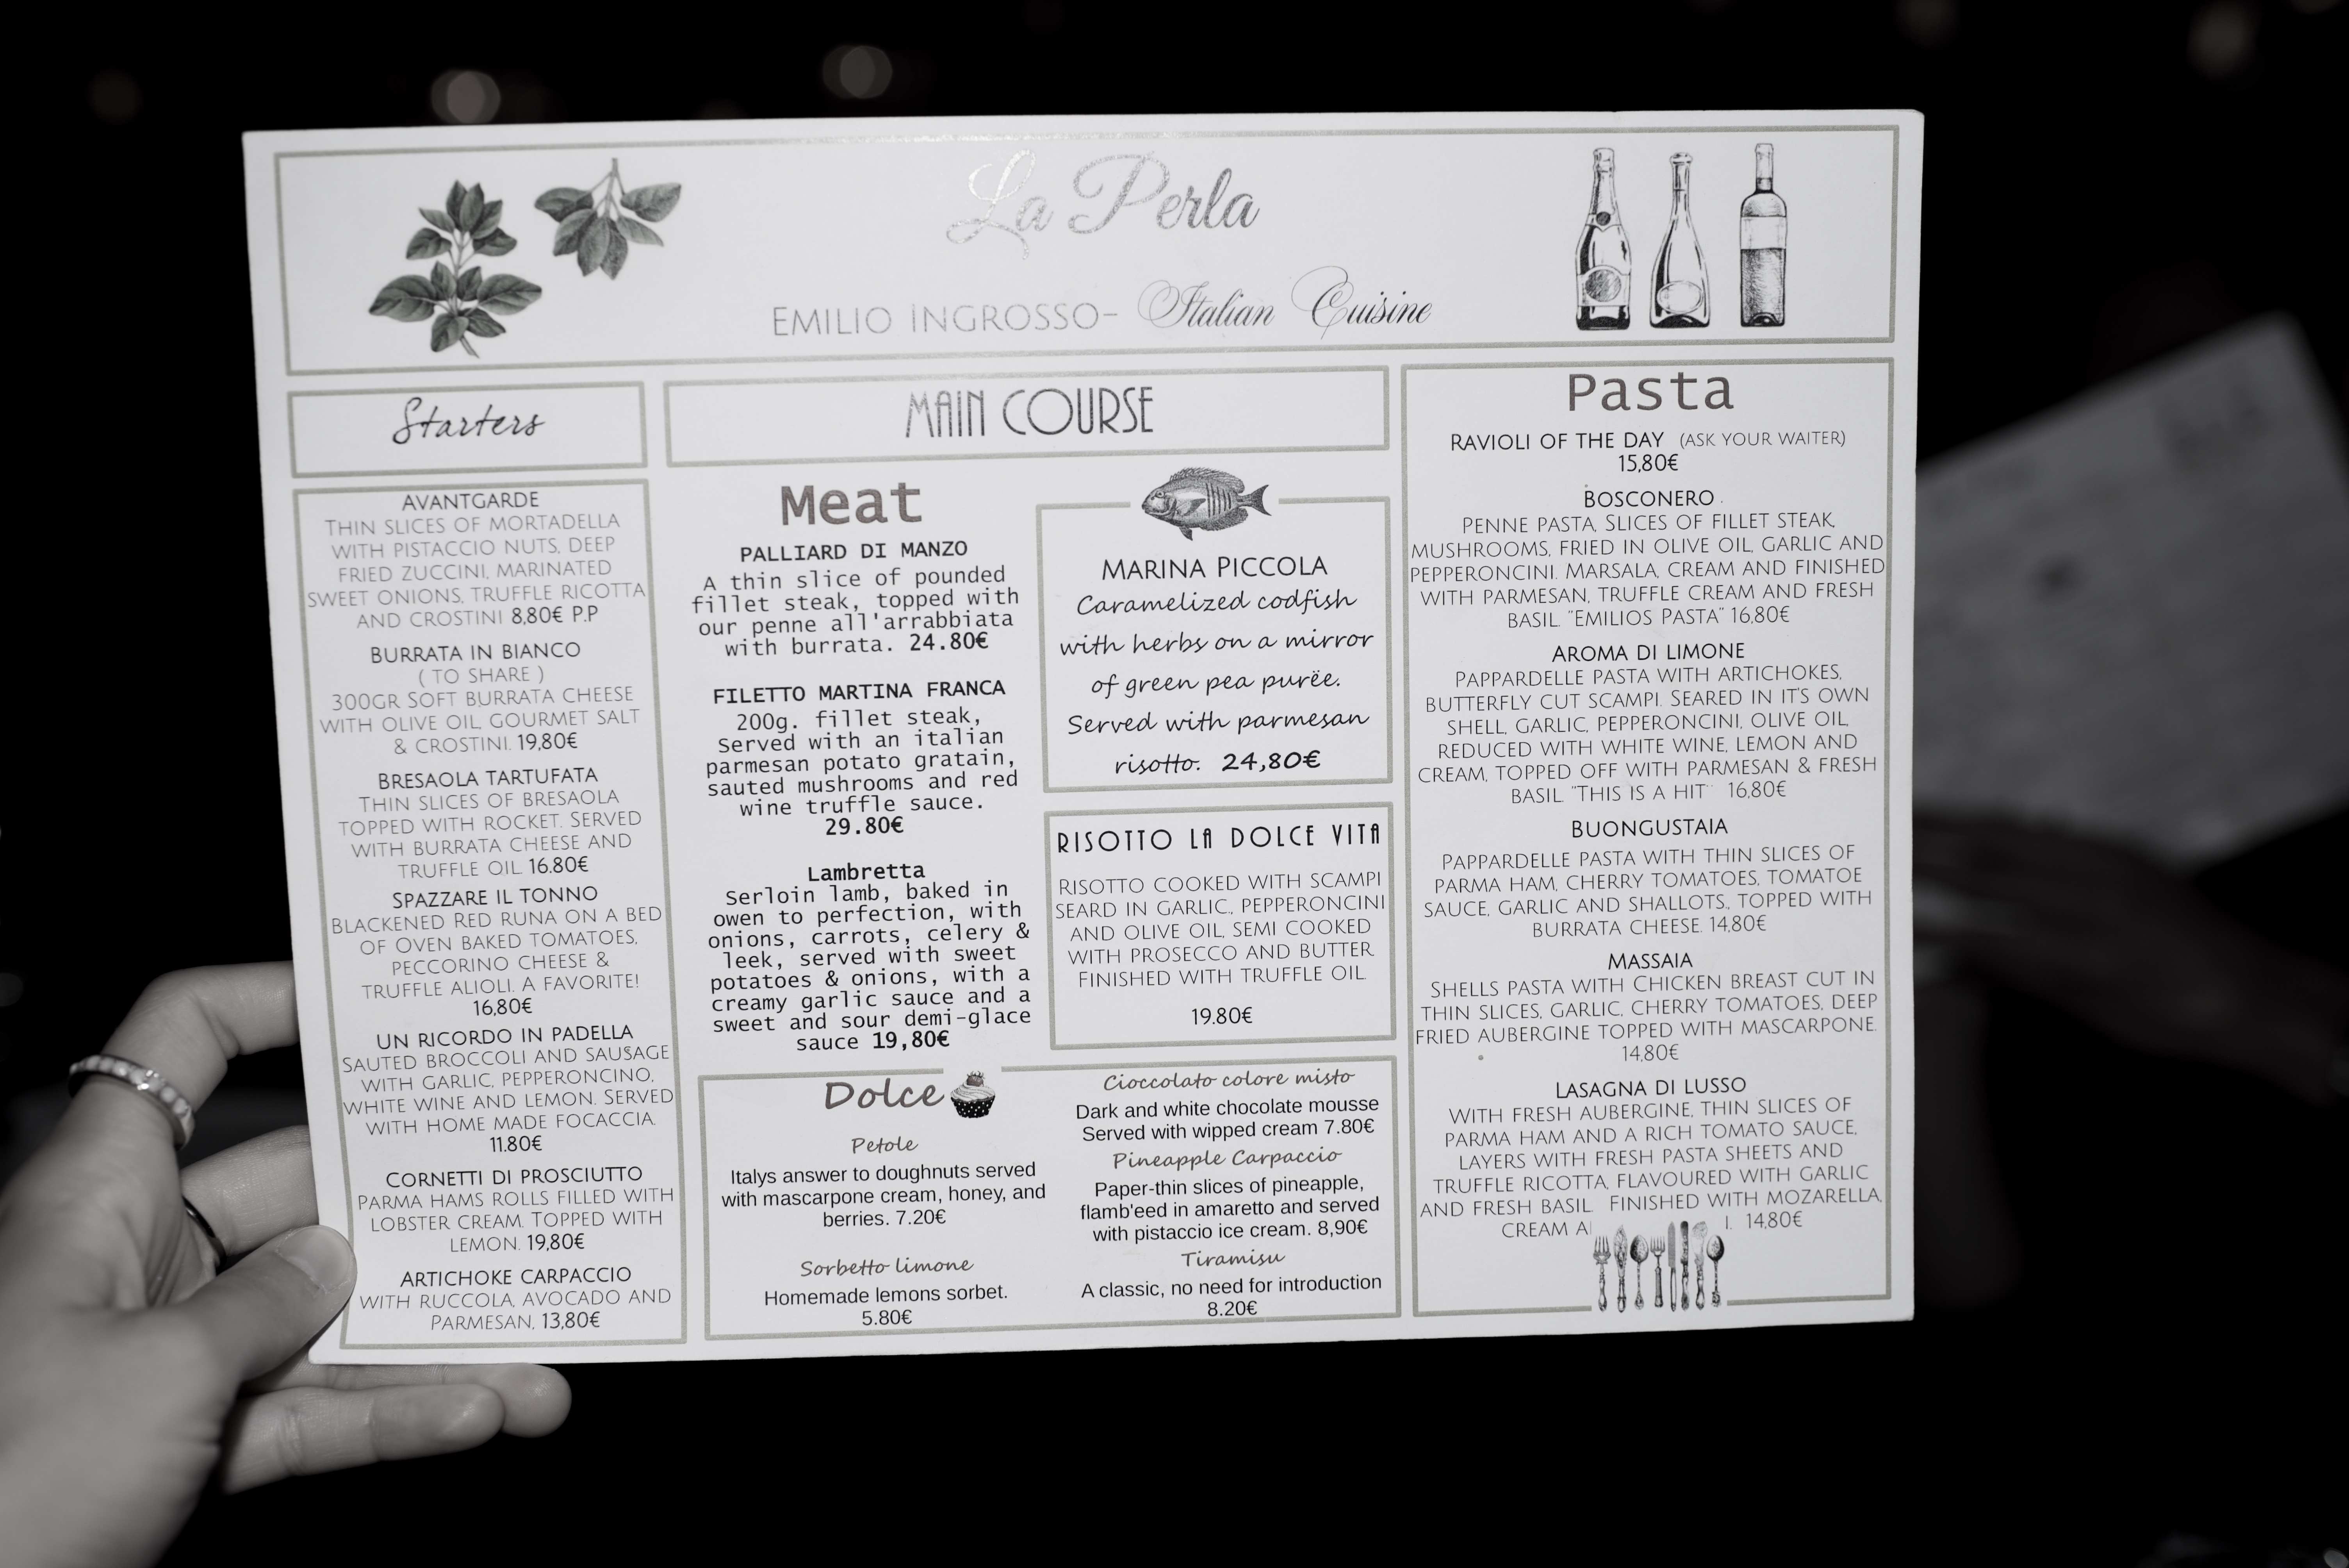 La Perla
EMILIO INGROSSO- Italian Cuisine
Starters
AVANTGARDE
THIN SLICES OF MORTADELLA
WITH PISTACCIO NUTS, DEEP
FRIED ZUCCINI, MARINATED
SWEET ONIONS, TRUFFLE RICOTTA
AND CROSTINI 8,80€ P.P
BURRATA IN BIANCO
( TO SHARE )
300GR SOFT BURRATA CHEESE
WITH OLIVE OIL, GOURMET SALT
& CROSTINI. 19,80€
BRESAOLA TARTUFATA
THIN SLICES OF BRESAOLA
TOPPED WITH ROCKET. SERVED
WITH BURRATA CHEESE AND
TRUFFLE OIL. 16.80€
SPAZZARE IL TONNO
BLACKENED RED RUNA ON A BED
OF OVEN BAKED TOMATOES,
PECCORINO CHEESE &
TRUFFLE ALIOLI. A FAVORITE!
16,80€
UN RICORDO IN PADELLA
SAUTED BROCCOLI AND SAUSAGE
WITH GARLIC, PEPPERONCINO,
WHITE WINE AND LEMON. SERVED
WITH HOME MADE FOCACCIA.
11.80€
CORNETTI DI PROSCIUTTO
PARMA HAMS ROLLS FILLED WITH
LOBSTER CREAM. TOPPED WITH
LEMON. 19,80€
ARTICHOKE CARPACCIO
WITH RUCCOLA, AVOCADO AND
PARMESAN, 13,80€
MAIN COURSE
Meat
PALLIARD DI MANZO
A thin slice of pounded
fillet steak, topped with
our penne all'arrabbiata
with burrata. 24.80€
FILETTO MARTINA FRANCA
200g. fillet steak,
Served with an italian
parmesan potato gratain,
sauted mushrooms and red
wine truffle sauce.
29.80€
Lambretta
Serloin lamb, baked in
owen to perfection, with
onions, carrots, celery &
leek, served with sweet
potatoes & onions, with a
creamy garlic sauce and a
sweet and sour demi-glace
sauce 19,80€
MARINA PICCOLA
Caramelized codfish
with herbs on a mirror
of green pea purëe.
Served with parmesan
risotto. 24,80€
RISOTTO LA DOLCE VITA
RISOTTO COOKED WITH SCAMPI
SEARD IN GARLIC., PEPPERONCINI
AND OLIVE OIL, SEMI COOKED
WITH PROSECCO AND BUTTER.
FINISHED WITH TRUFFLE OIL.
19.80€
Dolce
Petole
Italys answer to doughnuts served
with mascarpone cream, honey, and
berries. 7.20€
Sorbetto limone
Homemade lemons sorbet.
5.80€
Cioccolato colore misto
Dark and white chocolate mousse
Served with wipped cream 7.80€
Pineapple Carpaccio
Paper-thin slices of pineapple,
flamb'eed in amaretto and served
with pistaccio ice cream. 8,90€
Tiramisu
A classic, no need for introduction
8.20€
Pasta
RAVIOLI OF THE DAY (ASK YOUR WAITER)
15,80€
BOSCONERO .
PENNE PASTA, SLICES OF FILLET STEAK,
MUSHROOMS, FRIED IN OLIVE OIL, GARLIC AND
PEPPERONCINI. MARSALA, CREAM AND FINISHED
WITH PARMESAN, TRUFFLE CREAM AND FRESH
BASIL. "EMILIOS PASTA" 16,80€
AROMA DI LIMONE
PAPPARDELLE PASTA WITH ARTICHOKES,
BUTTERFLY CUT SCAMPI. SEARED IN IT'S OWN
SHELL, GARLIC, PEPPERONCINI, OLIVE OIL,
REDUCED WITH WHITE WINE, LEMON AND
CREAM, TOPPED OFF WITH PARMESAN & FRESH
BASIL. "THIS IS A HIT" 16,80€
BUONGUSTAIA
PAPPARDELLE PASTA WITH THIN SLICES OF
PARMA HAM, CHERRY TOMATOES, TOMATOE
SAUCE, GARLIC AND SHALLOTS., TOPPED WITH
BURRATA CHEESE. 14,80€
MASSAIA
SHELLS PASTA WITH CHICKEN BREAST CUT IN
THIN SLICES, GARLIC, CHERRY TOMATOES, DEEP
FRIED AUBERGINE TOPPED WITH MASCARPONE.
14,80€
LASAGNA DI LUSSO
WITH FRESH AUBERGINE, THIN SLICES OF
PARMA HAM AND A RICH TOMATO SAUCE,
LAYERS WITH FRESH PASTA SHEETS AND
TRUFFLE RICOTTA, FLAVOURED WITH GARLIC
AND FRESH BASIL. FINISHED WITH MOZARELLA,
CREAM 14,80€